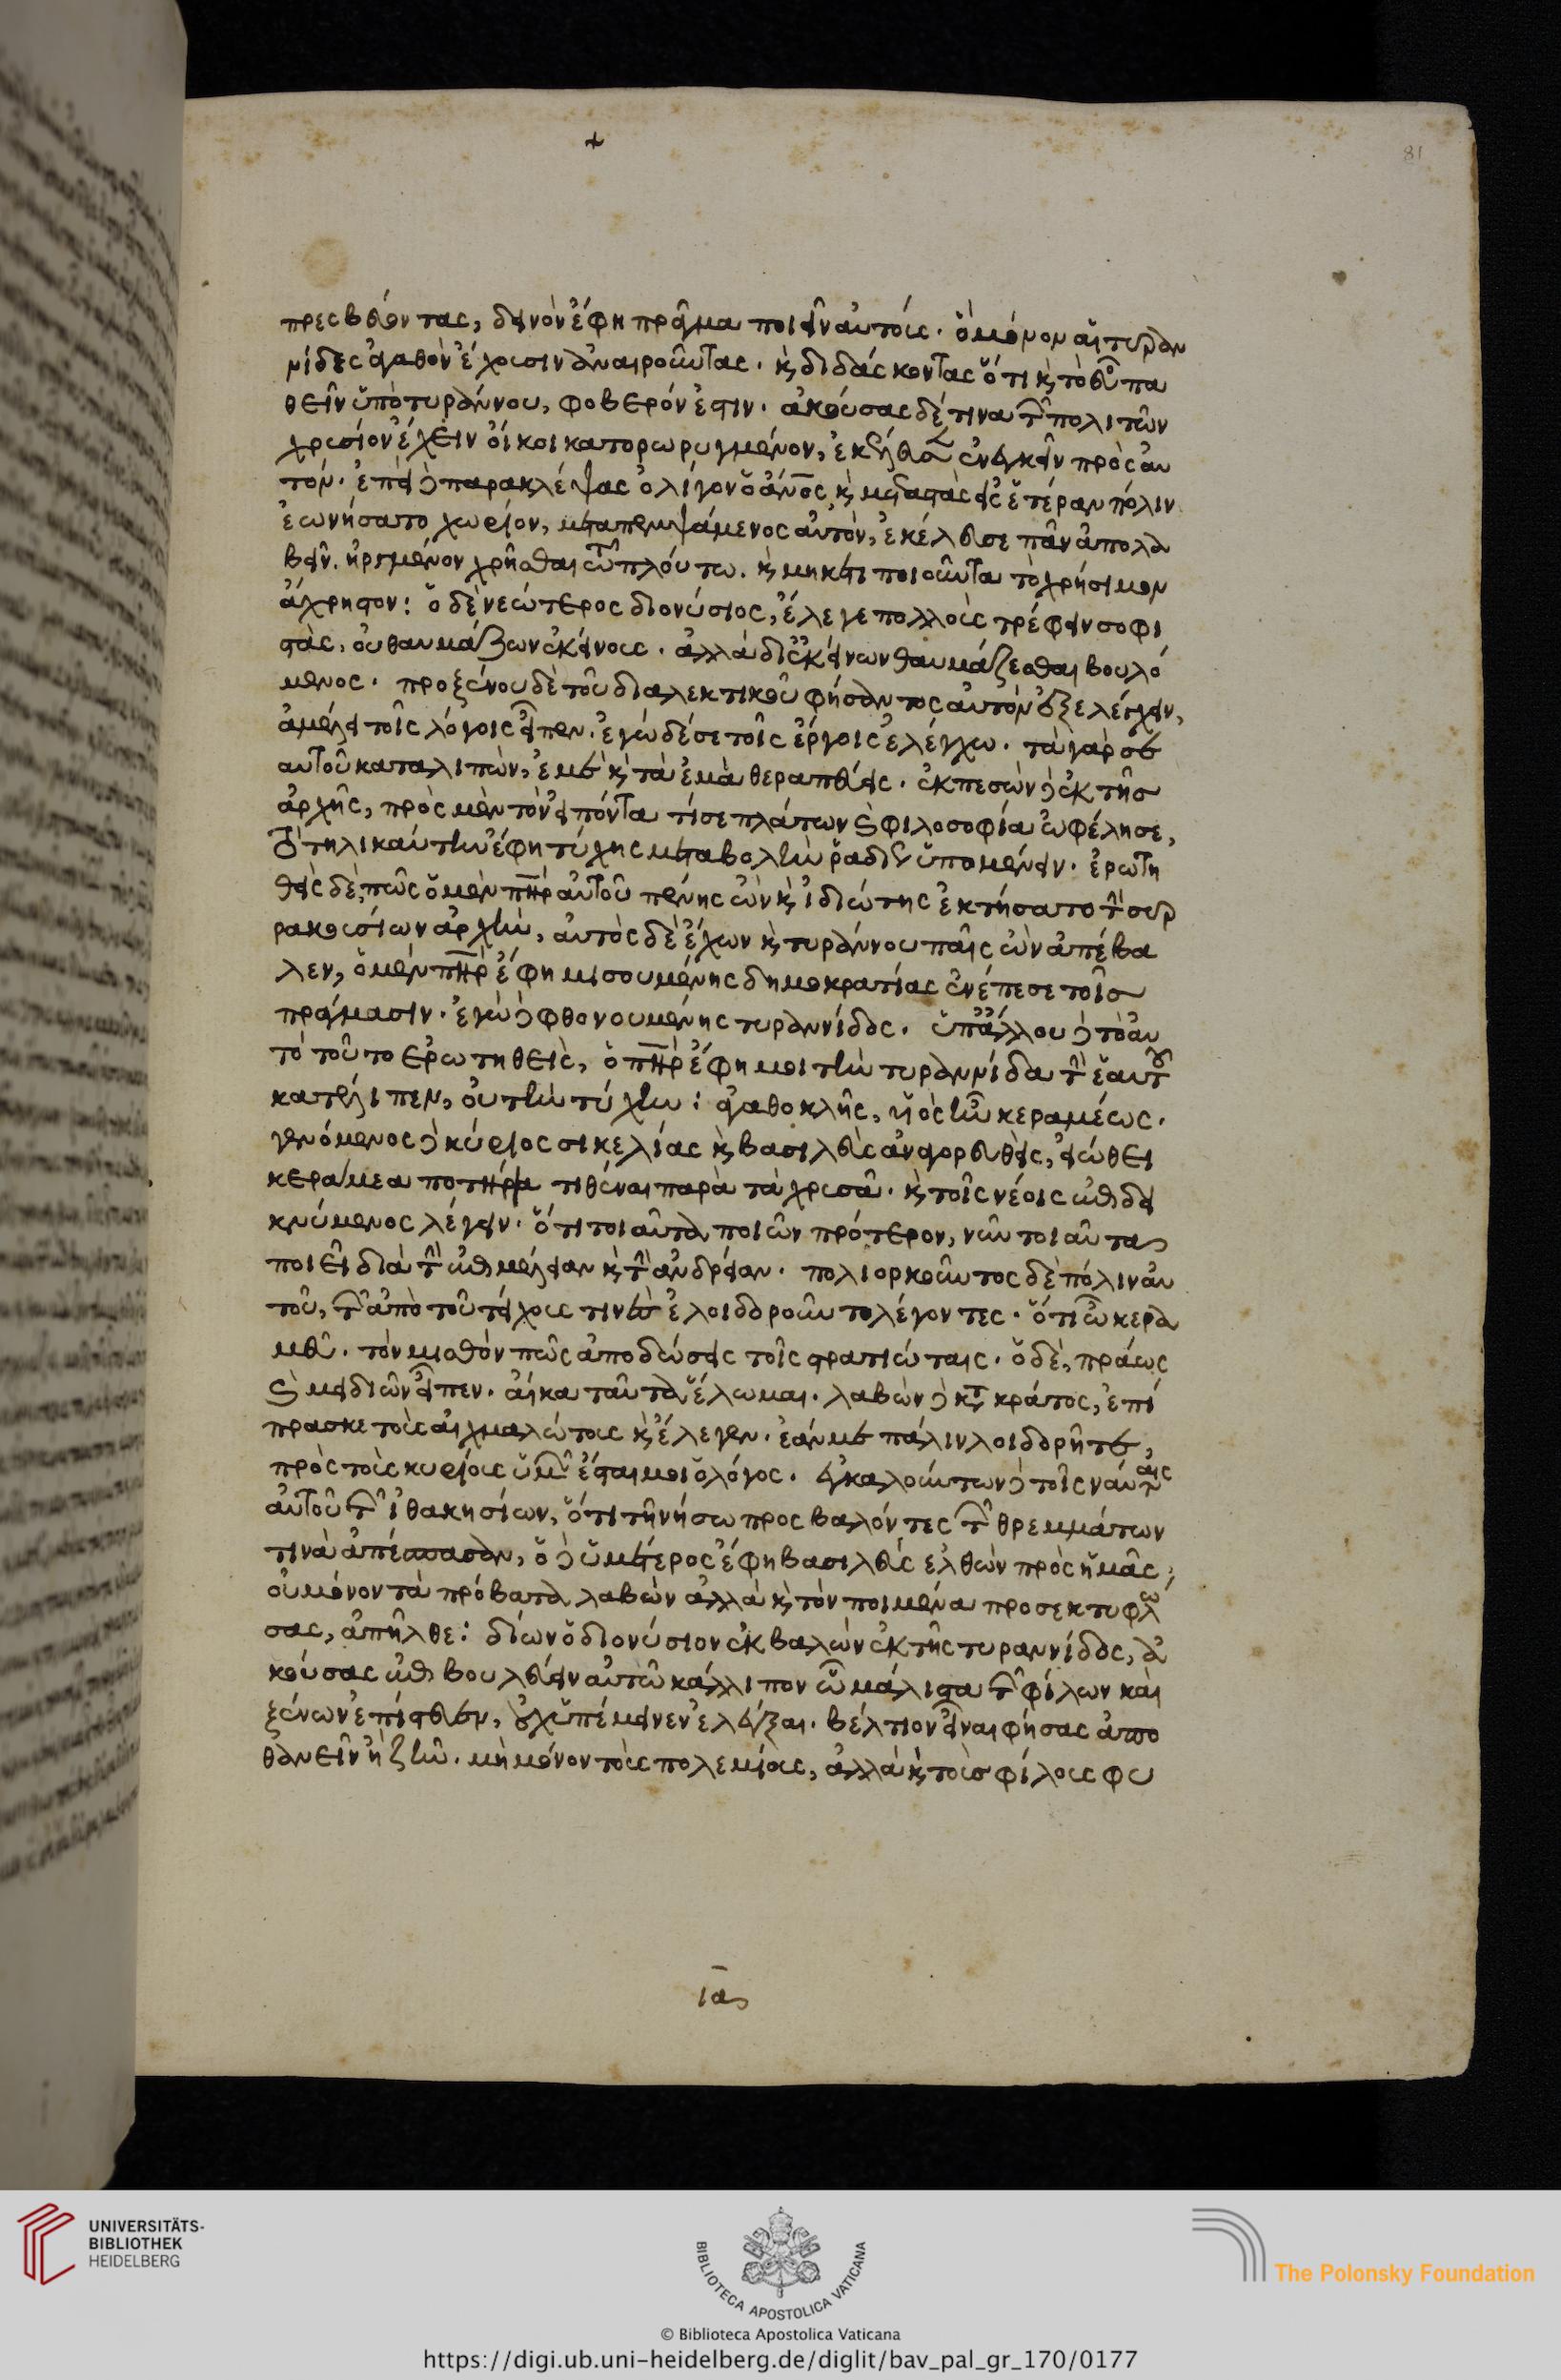 πρεσβεύοντας, δεινὸν ἔφη πρᾶγμα ποιεῖν αὐτούς. ὃ μόνον αἱ τυραν
νίδες ἀγαθὸν ἔχουσιν ἀναιροῦντας. ϗ διδάσκοντας ὅτι ϗ τὸ εὖ πα
θεῖν ὑπὸ τυράννου, φοβερόν ἐστιν. ἀκούσας δέ τινα τῶν πολιτῶν
χρυσίον ἔχειν οἴκοι κατορωρυγμένον, ἐκέλευσεν ἐνεγκεῖν πρὸς αὐ
τόν. ἐπεὶ δὲ παρακλέψας ὀλίγον ὁ ἄνος ϗ μεταστὰς εἰς ἑτέραν πόλιν
ἐωνήσατο χωρίον, μεταπεμψάμενος αὐτὸν, ἐκέλευσε πᾶν ἀπολα
βεῖν. ἠργμένον χρῆσθαι τῷ πλούτω. ϗ μηκέτι ποιοῦντα τὸ χρήσιμον
ἄχρηστον: ὁ δὲ νεώτερος διονύσιος, ἔλεγε πολλοὺς τρέφειν σοφι
στὰς, οὐ θαυμάζων ἐκείνους. ἀλλὰ δι' ἐκείνων θαυμάζεσθαι βουλό
μενος. προξένου δὲ τοῦ διαλεκτικοῦ φήσαντος αὐτὸν ἐξελέγχειν,
ἀμέλει τοῖς λόγοις εἶπεν. ἐγὼ δέ σε τοῖς ἔργοις ἐλέγχω. τὰ γὰρ σε
αυτοῦ καταλιπὼν, ἐμὲ ϗ τὰ ἐμὰ θεραπεύεις. ἐκπεσὼν δὲ ἐκ τῆς
ἀρχῆς, πρὸς μὲν τὸν εἰπόντα τί σε πλάτων ϗ φιλοσοφία ὠφέλησε,
τὸ τηλικαύτην ἔφη τύχης μεταβολὴν ῥαδίως ὑπομένειν. ἐρωτη
θεὶς δὲ, πῶς ὁ μὲν πηρ αὐτοῦ πένης ὢν ϗ ἰδιώτης ἐκτήσατο τὴν συρ
ρακουσίων ἀρχὴν, αὐτὸς δὲ ἔχων ϗ τυράννου παῖς ὢν ἀπέβα
λεν, ὁ μὲν πηρ ἔφη μισουμένης δημοκρατίας ἐνέπεσε τοῖς
πράγμασιν. ἐγὼ δὲ φθονουμένης τυραννίδος. ὑπ' ἄλλου δὲ τὸ αὐ
τὸ τοῦτο ἐρωτηθεὶς, ὁ πηρ ἔφη μοι τὴν τυραννίδα τὴν ἑαυτοῦ
κατέλιπεν, οὐ τὴν τύχην: ἀγαθοκλῆς, υἱὸς ἦν κεραμέως.
γενόμενος δὲ κύριος σικελίας ϗ βασιλεὺς ἀναγορευθεὶς, εἰώθει
κεράμεα ποτήρια τιθέναι παρὰ τὰ χρυσᾶ. ϗ τοῖς νέοις ἐπιδει
κνύμενος λέγειν. ὅτι τοιαῦτα ποιῶν πρότερον, νῦν τοιαῦτα
ποιεῖ διὰ τὴν ἐπιμέλειαν ϗ τὴν ἀνδρείαν. πολιορκοῦντος δὲ πόλιν αὐ
τοῦ, τῶν ἀπὸ τοῦ τείχους τινὲς ἐλοιδοροῦντο λέγοντες. ὅτι ὦ κερα
μεῦ. τὸν μισθὸν πῶς ἀποδώσεις τοῖς στρατιώταις. ὁ δὲ, πράως
ϗ μειδιῶν εἶπεν. αἴκα ταύταν ἕλωμαι. λαβὼν δὲ κατὰ κράτος, ἐπί
πρασκε τοὺς αἰχμαλώτους ϗ ἔλεγεν. ἐάν με πάλιν λοιδορῆτε,
πρὸς τοὺς κυρίους ὑμῶν ἔσται μοι ὁ λόγος. ἐγκαλούντων δὲ τοῖς ναύταις
αὐτοῦ τῶν ἰθακησίων, ὅτι τῆ νήσω προσβαλόντες τῶν θρεμμάτων
τινὰ ἀπέσπασαν, ὁ δὲ ὑμέτερος ἔφη βασιλεὺς ἐλθὼν πρὸς ἡμᾶς,
οὐ μόνον τὰ πρόβατα λαβὼν ἀλλὰ ϗ τὸν ποιμένα προσεκτυφλώ
σας, ἀπῆλθε: δίων ὁ διονύσιον ἐκβαλὼν ἐκ τῆς τυραννίδος, ἀ
κούσας ἐπιβουλεύειν αὐτῶ κάλλιπον ᾧ μάλιστα τῶν φίλων καὶ
ξένων ἐπίστευεν, οὐχ ὑπέμεινεν ἐλέγξαι. βέλτιον εἶναι φήσας ἀπο
θανεῖν ἢ ζῆν. μὴ μόνον τοὺς πολεμίους, ἀλλὰ ϗ τοὺς φίλους φυ
ια
81
UNIVERSITÄTS-
BIBLIOTHEK
HEIDELBERG
BIBLIOTECA APOSTOLICA VATICANA
The Polonsky Foundation
© Biblioteca Apostolica Vaticana
https://digi.ub.uni-heidelberg.de/diglit/bav_pal_gr_170/0177